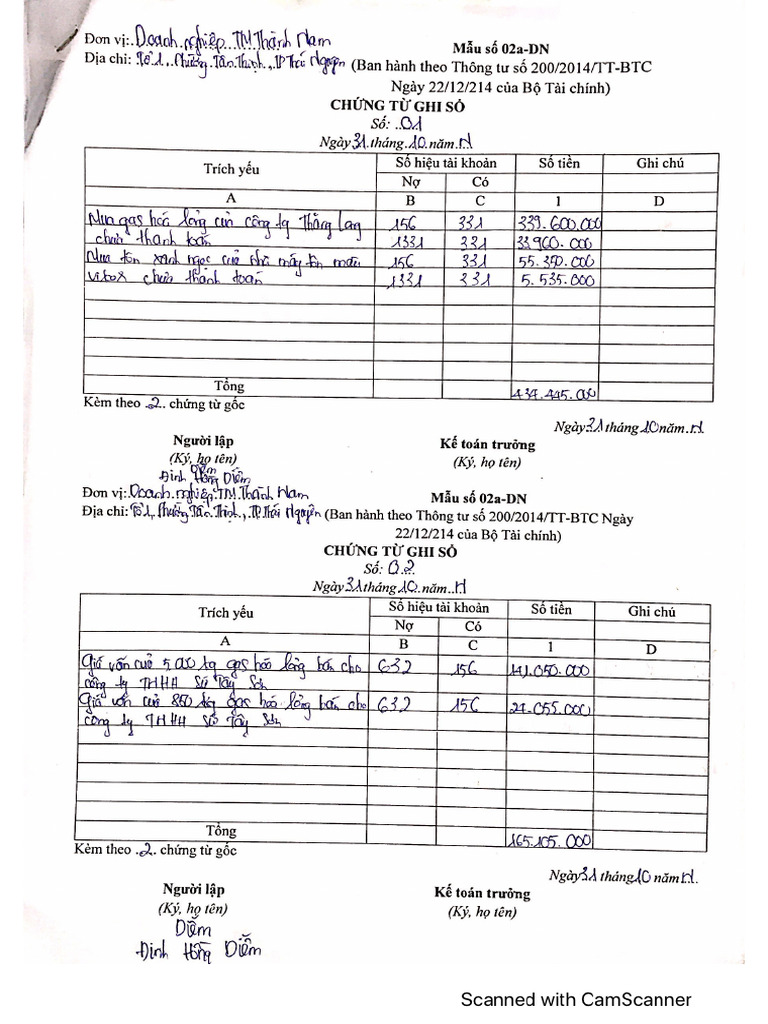 Đơn vị: Doanh nghiệp TM Thành Nam
Mẫu số 02a-DN
Địa chỉ: Tổ 1, Phường Tân Thịnh, TP Thái Nguyên (Ban hành theo Thông tư số 200/2014/TT-BTC
Ngày 22/12/214 của Bộ Tài chính)
CHỨNG TỪ GHI SỔ
Số: 01
Ngày 31 tháng 10 năm N
Trích yếu Số hiệu tài khoản Số tiền Ghi chú
Nợ Có
A B C 1 D
Mua gas hóa lỏng của công ty Thăng Long 156 331 339.600.000
chưa thanh toán 1331 331 33.960.000
Mua tôn xanh ngọc của nhà máy tôn màu 156 331 55.350.000
vitex chưa thanh toán 1331 331 5.535.000
Tổng 434.445.000
Kèm theo 2 chứng từ gốc
Ngày 31 tháng 10 năm N.
Người lập Kế toán trưởng
(Ký, họ tên) (Ký, họ tên)
Diễm
Đinh Hồng Diễm
Đơn vị: Doanh nghiệp TM Thành Nam
Mẫu số 02a-DN
Địa chỉ: Tổ 1, Phường Tân Thịnh, TP. Thái Nguyên (Ban hành theo Thông tư số 200/2014/TT-BTC Ngày
22/12/214 của Bộ Tài chính)
CHỨNG TỪ GHI SỔ
Số: 02
Ngày 31 tháng 10 năm N
Trích yếu Số hiệu tài khoản Số tiền Ghi chú
Nợ Có
A B C 1 D
Giá vốn của 5.000 kg gas hóa lỏng bán cho 632 156 141.050.000
công ty TNHH Sứ Tây Sơn
Giá vốn của 850 kg gas hóa lỏng bán cho 632 156 24.055.000
công ty TNHH Sứ Tây Sơn
Tổng 165.105.000
Kèm theo 2 chứng từ gốc
Ngày 31 tháng 10 năm N.
Người lập Kế toán trưởng
(Ký, họ tên) (Ký, họ tên)
Diễm
Đinh Hồng Diễm
Scanned with CamScanner